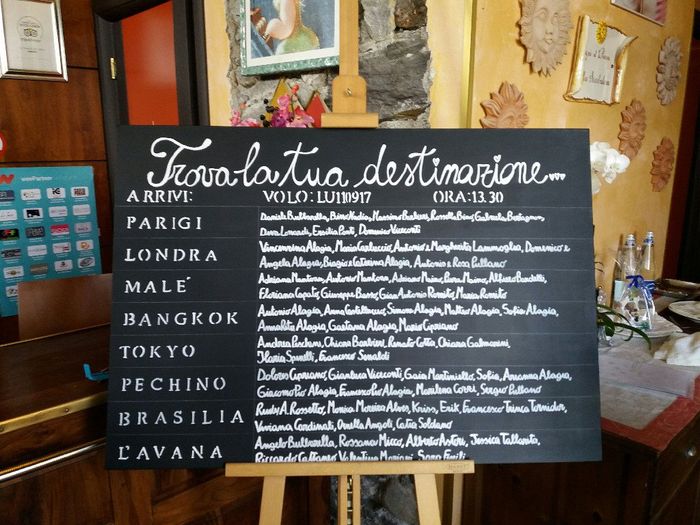 Trova la tua destinazione...
ARRIVI: VOLO: LU110917 ORA: 13.30
PARIGI
Daniele Bulbarella, Bino Nadia, Massimo Barbera, Rossella Bino, Gabriele Bertagnon,
Dora Locardi, Emilia Ponti, Domenico Viceconti
LONDRA
Vincenzina Alagia, Mario Carluccio, Antonio e Margherita Lammoglia, Domenico e
Angela Alagia, Biagio e Caterina Alagia, Antonio e Rosa Pullano
MALE'
Adriana Mantona, Antonio Mantona, Adriano Maino, Piera Maino, Alfiero Bardelli,
Floriana Capato, Giuseppe Basso, Gian Antonio Romito, Maria Romito
BANGKOK
Antonio Alagia, Anna Castelluccio, Simona Alagia, Mattia Alagia, Sofia Alagia,
Annalita Alagia, Gaetana Alagia, Mario Cipriano
TOKYO
Andrea Pischeri, Chiara Barbieri, Renato Cotta, Chiara Galmarini,
Ilaria Spinelli, Francesco Senaldi
PECHINO
Dolores Cipriano, Gianluca Viceconti, Gaia Martiniello, Sofia, Arianna Alagia,
Giacomo Pio Alagia, Francesco Pio Alagia, Marilena Corri, Sergio Pullano
BRASILIA
Rudy A. Rossetto, Monica Moreira Alves, Kriss, Erik, Francesco Trinca Tornidor,
Viviana Cardinati, Ornella Angoli, Catia Soldano
L'AVANA
Angelo Bulbarella, Rossana Micco, Alberto Astori, Jessica Tallarita,
Riccardo Cattaneo, Valentina Mariani, Sara Emili